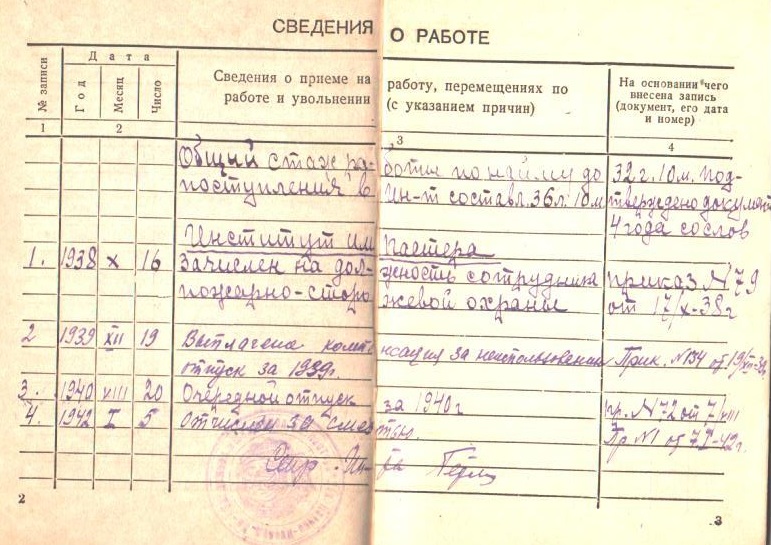 СВЕДЕНИЯ О РАБОТЕ
№ записи
Дата
Год
Месяц
Число
Сведения о приеме на работу, перемещениях по
работе и увольнении (с указанием причин)
На основании чего
внесена запись
(документ, его дата
и номер)
1 2 3 4
Общий стаж работы по найму до 32 г. 10 м. под-
поступления в Ин-т составл. 36 л. 10 м тверждено документ
4 года со слов
Институт им Пастера
1. 1938 X 16 зачислен на должность сотрудника приказ N 79
пожарно-сторожевой охраны от 17/X-38 г
2 1939 XII 19 Выплачена компенсация за неиспользованн Прик. N 134 от 19/XII-39
отпуск за 1939 г.
3. 1940 VIII 20 Очередной отпуск за 1940 г пр. N 72 от 7/VIII
4. 1942 I 5 Отчислен за смертью. Пр N 1 от 7 I-42 г.
2
3